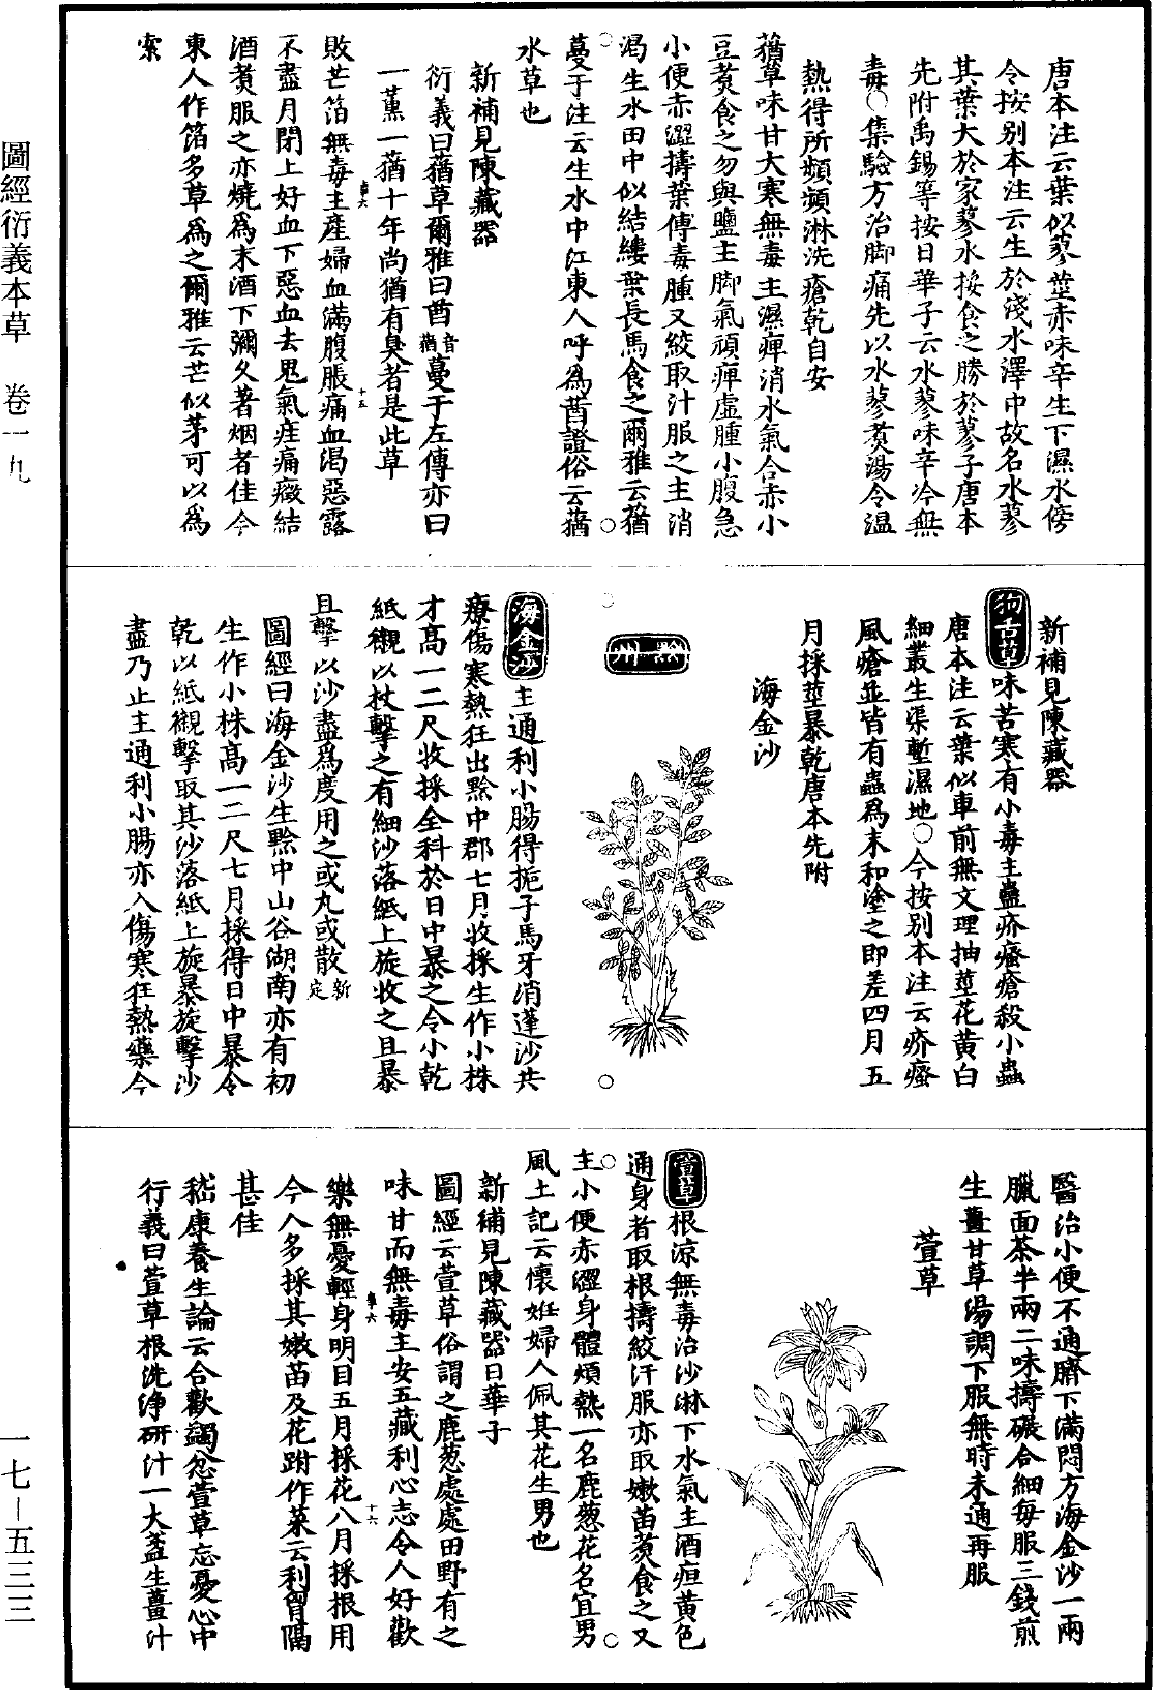 唐本注云葉似蓼莖赤味辛生下濕水傍
今按别本注云生於淺水澤中故名水蓼
其葉大於家蓼水挼食之勝於蓼子唐本
先附禹錫等按日華子云水蓼味辛冷無
毒○集驗方治脚痛先以水蓼煑湯令温
熱得所頻頻淋洗瘡乾自安
蕕草味甘大寒無毒主濕痺消水氣合赤小
豆煑食之勿與鹽主脚氣頑痺虛腫小腹急
小便赤澀擣葉傅毒腫又絞取汁服之主消
渴生水田中似結縷葉長馬食之爾雅云蕕
蔓于注云生水中江東人呼爲莤證俗云蕕
水草也
新補見陳藏器
衍義曰蕕草爾雅曰莤音蕕蔓于左傳亦曰
一薰一蕕十年尚猶有臭者是此草
敗芒箔無毒主產婦血滿腹脹痛血渴惡露
不盡月閉上好血下惡血去鬼氣疰痛癥結
酒煑服之亦燒爲末酒下彌久著烟者佳今
東人作箔多草爲之爾雅云芒似茅可以爲
索
新補見陳藏器
狗舌草味苦寒有小毒主蠱疥瘙瘡殺小蟲
唐本注云葉似車前無文理抽莖花黄白
細叢生渠塹濕地○今按别本注云疥瘙
風瘡並皆有蟲爲末和塗之即差四月五
月採莖暴乾唐本先附
海金沙
黔州
海金沙主通利小腸得梔子馬牙消蓬沙共
療傷寒熱狂出黔中郡七月收採生作小株
才高一二尺收採全科於日中暴之令小乾
紙襯以杖擊之有細沙落紙上旋收之且暴
且擊以沙盡爲度用之或丸或散新定
圖經曰海金沙生黔中山谷湖南亦有初
生作小株高一二尺七月採得日中暴令
乾以紙襯擊取其沙落紙上旋暴旋擊沙
盡乃止主通利小腸亦入傷寒狂熱藥今
醫治小便不通臍下滿悶方海金沙一兩
臘面茶半兩二味擣碾合細每服三錢煎
生薑甘草湯調下服無時未通再服
萱草
萱草根涼無毒治沙淋下水氣主酒疸黄色
通身者取根擣絞汁服亦取嫩苗煑食之又
主小便赤澀身體煩熱一名鹿葱花名宜男
風土記云懷姙婦人佩其花生男也
新補見陳藏器日華子
圖經云萱草俗謂之鹿葱處處田野有之
味甘而無毒主安五藏利心志令人好歡
樂無憂輕身明目五月採花八月採根用
今人多採其嫩苗及花跗作菜云利胷膈
甚佳
嵇康養生論云合歡蠲忿萱草忘憂心中
行義曰萱草根洗浄研汁一大盞生薑汁
圖經衍義本草　卷一九
一七—五三三